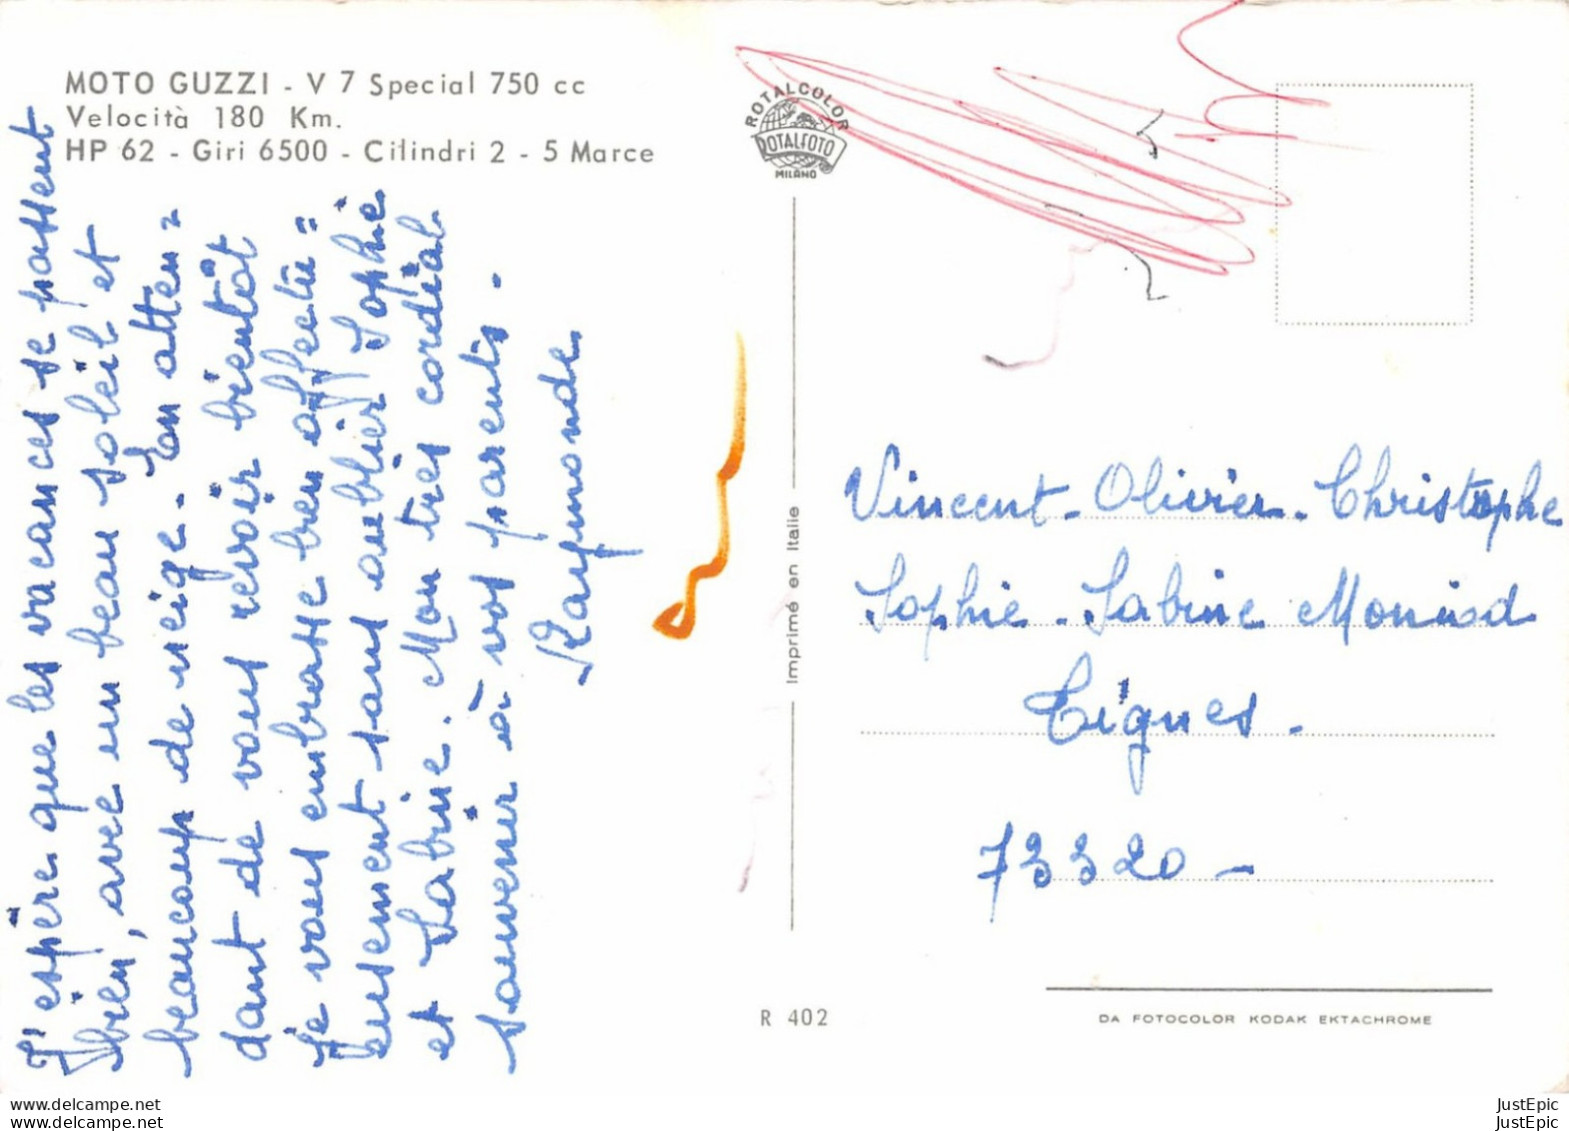 MOTO GUZZI - V 7 Special 750 cc
Velocità 180 Km.
HP 62 - Giri 6500 - Cilindri 2 - 5 Marce
ROTALCOLOR
ROTALFOTO
MILANO
J'espère que les vacances se passent
bien, avec un beau soleil et
beaucoup de neige. En atten=
dant de vous revoir bientôt
je vous embrasse bien affectu=
eusement sans oublier Sophie
et Sabine. Mon très cordial
souvenir à vos parents.
Raymonde
Imprimé en Italie
Vincent - Olivier - Christophe
Sophie - Sabine Moniod
Tignes.
73320 -
R 402
DA FOTOCOLOR KODAK EKTACHROME
www.delcampe.net
www.delcampe.net
JustEpic
JustEpic